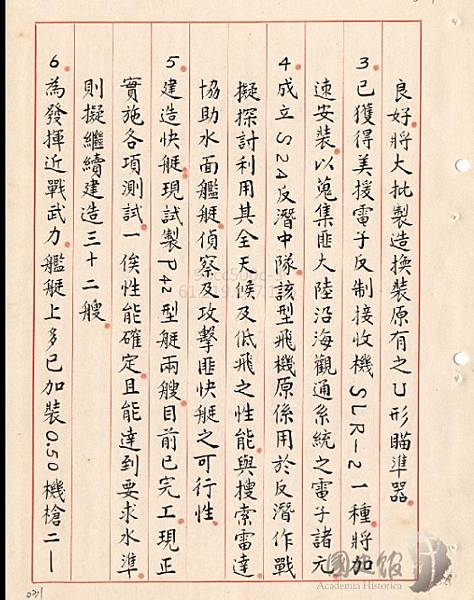 良好將大批製造換裝原有之U形瞄準器
3已獲得美援電子反制接收機SLR-2一種將加
速安裝以蒐集匪大陸沿海觀通系統之電子諸元
4成立S2A反潛中隊該型飛機原係用於反潛作戰
擬探討利用其全天候及低飛之性能與搜索雷達
協助水面艦艇偵察及攻擊匪快艇之可行性
5建造快艇現試製P42型艇兩艘目前已完工現正
實施各項測試一俟性能確定且能達到要求水準
則擬繼續建造三十二艘
6為發揮近戰武力艦艇上多已加裝0.50機槍二—
國史館
Academia Historica